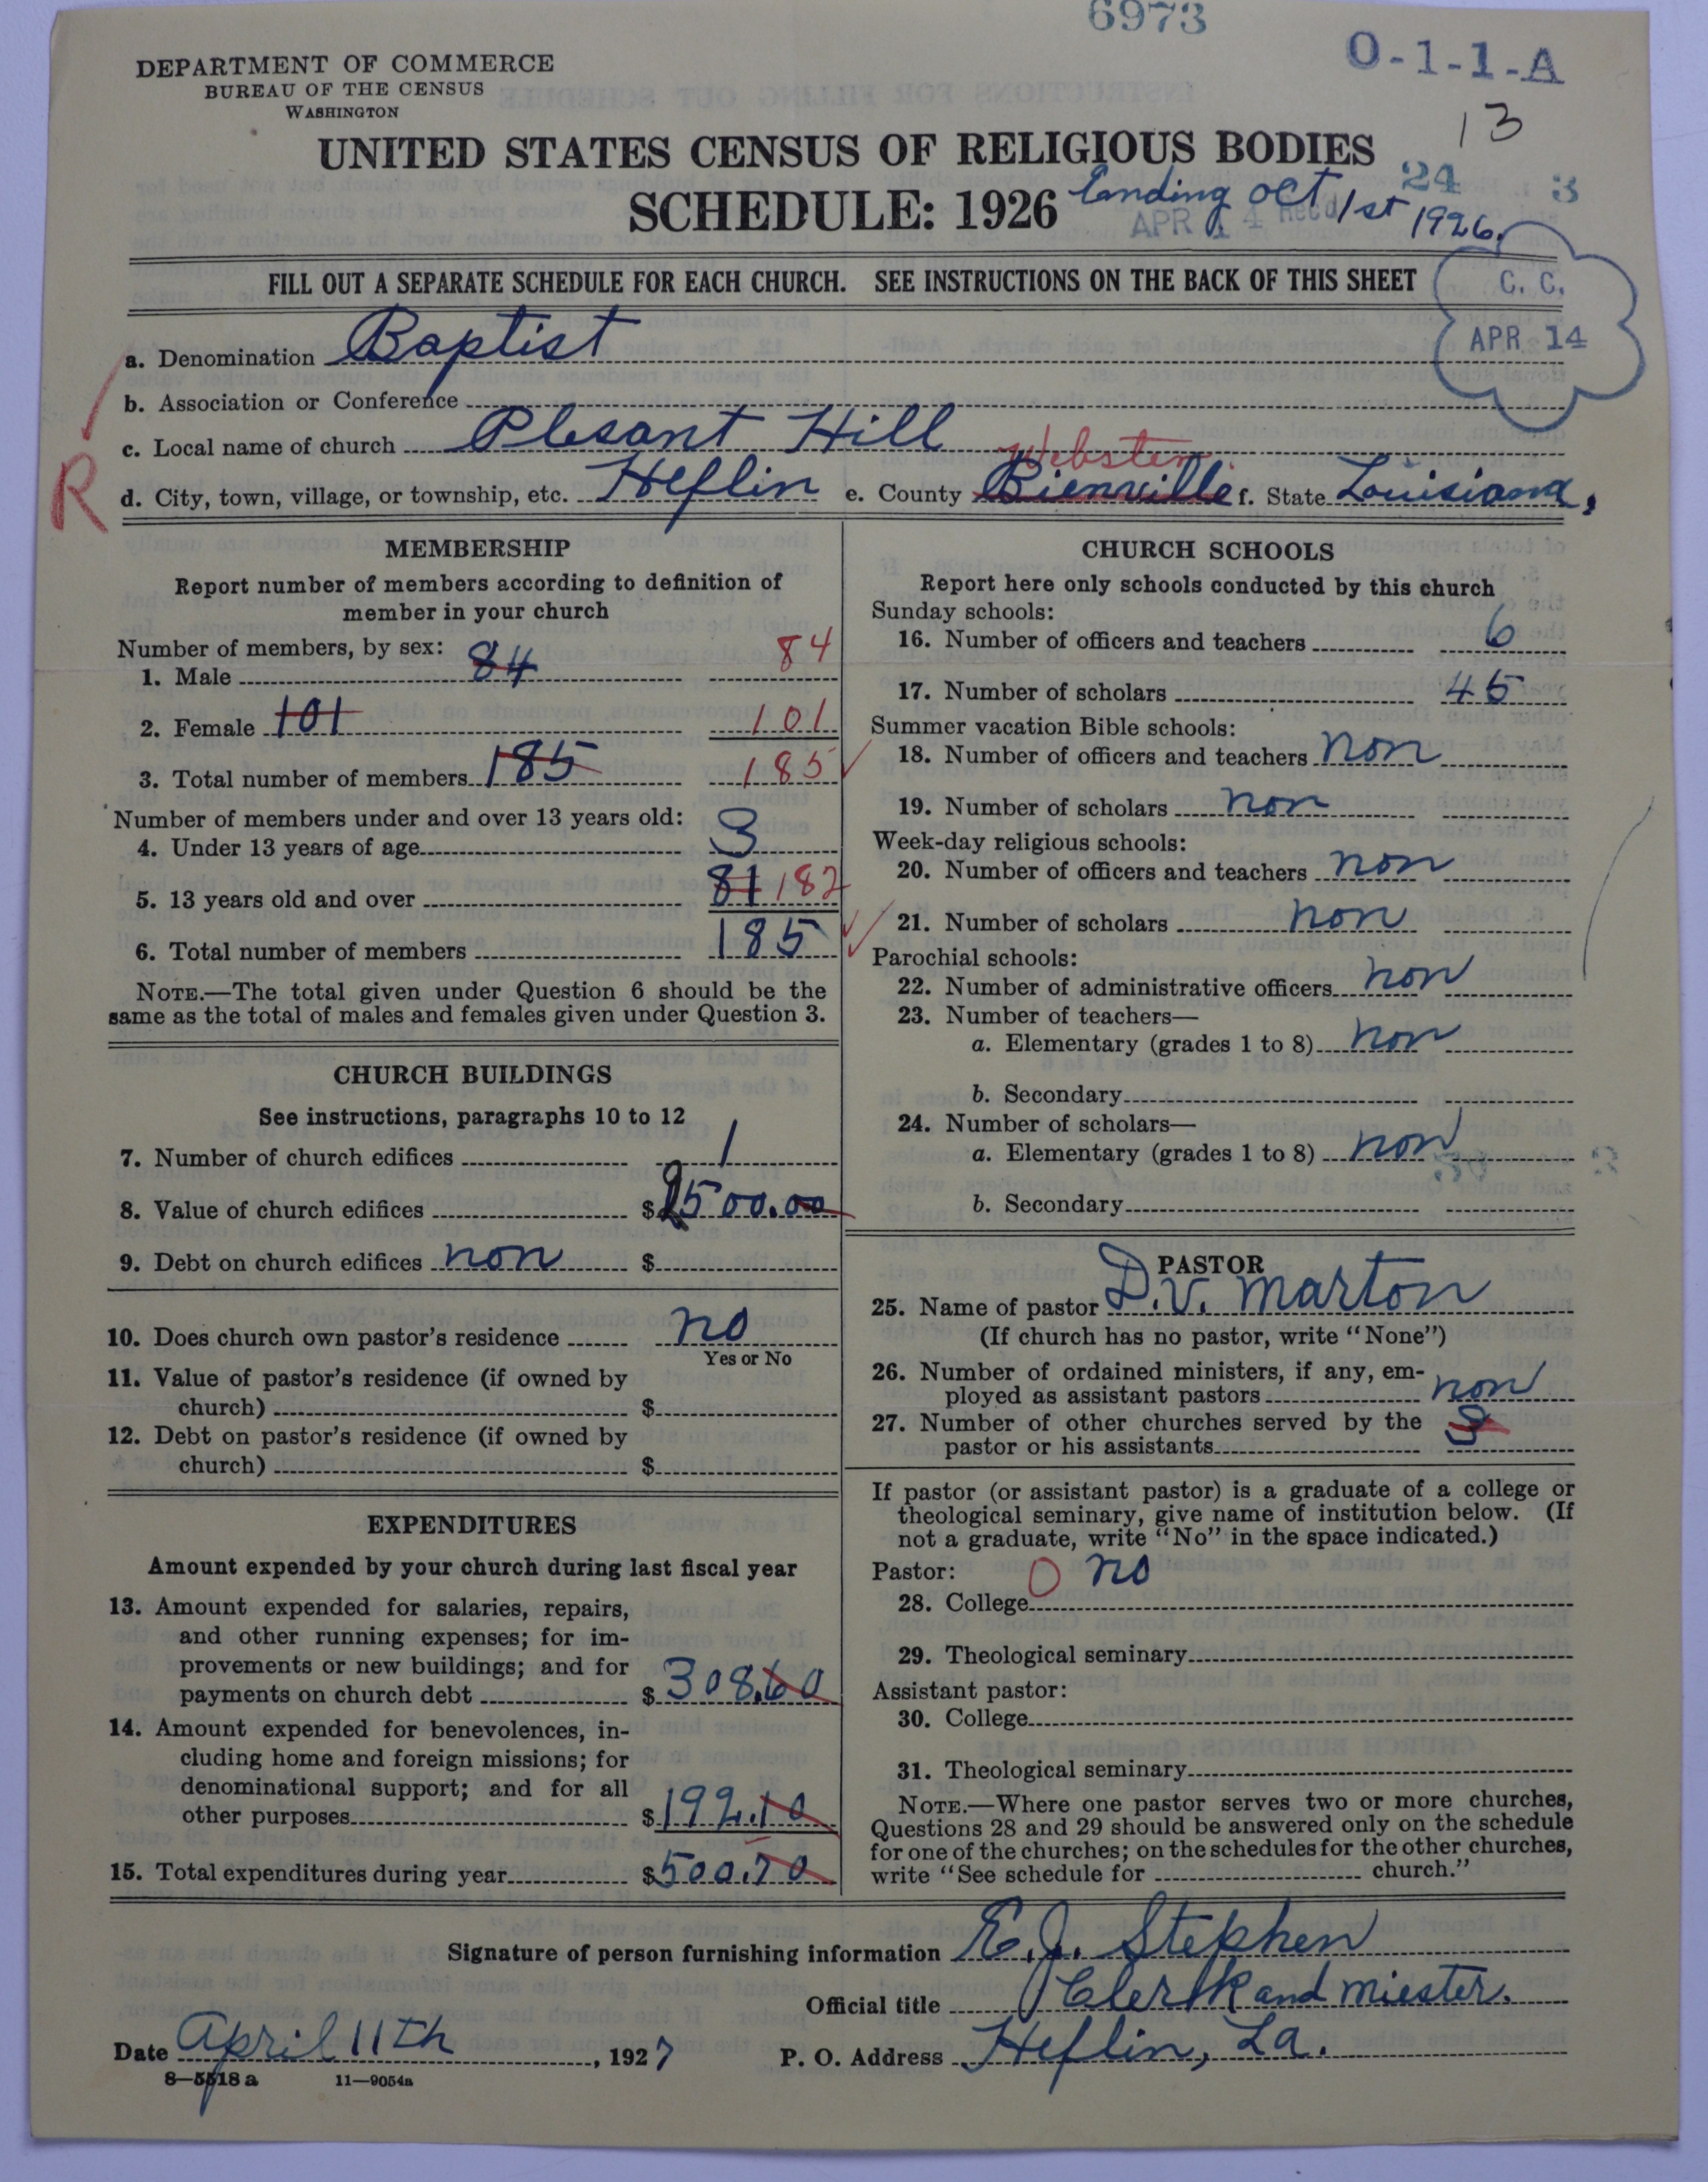 6973
O-1-1-A
13
DEPARTMENT OF COMMERCE
BUREAU OF THE CENSUS
WASHINGTON
UNITED STATES CENSUS OF RELIGIOUS BODIES
SCHEDULE: 1926 Ending Oct 1st 1926.
24 3
APR 14 Rec'd
FILL OUT A SEPARATE SCHEDULE FOR EACH CHURCH. SEE INSTRUCTIONS ON THE BACK OF THIS SHEET
C. C.
APR 14
a. Denomination Baptist
b. Association or Conference
c. Local name of church Plesant Hill
R
d. City, town, village, or township, etc. Heflin e. County Bienville Webster f. State Louisiana,
MEMBERSHIP
Report number of members according to definition of
member in your church
Number of members, by sex:
1. Male 84 84
2. Female 101 101
3. Total number of members 185 185
Number of members under and over 13 years old:
4. Under 13 years of age 3
5. 13 years old and over 81 182
6. Total number of members 185
NOTE.—The total given under Question 6 should be the
same as the total of males and females given under Question 3.
CHURCH BUILDINGS
See instructions, paragraphs 10 to 12
7. Number of church edifices 1
8. Value of church edifices $2500.00
9. Debt on church edifices non $
10. Does church own pastor's residence no
Yes or No
11. Value of pastor's residence (if owned by
church) $
12. Debt on pastor's residence (if owned by
church) $
EXPENDITURES
Amount expended by your church during last fiscal year
13. Amount expended for salaries, repairs,
and other running expenses; for im-
provements or new buildings; and for
payments on church debt $308.60
14. Amount expended for benevolences, in-
cluding home and foreign missions; for
denominational support; and for all
other purposes $192.10
15. Total expenditures during year $500.70
CHURCH SCHOOLS
Report here only schools conducted by this church
Sunday schools:
16. Number of officers and teachers 6
17. Number of scholars 45
Summer vacation Bible schools:
18. Number of officers and teachers non
19. Number of scholars non
Week-day religious schools:
20. Number of officers and teachers non
21. Number of scholars non
Parochial schools:
22. Number of administrative officers non
23. Number of teachers—
a. Elementary (grades 1 to 8) non
b. Secondary
24. Number of scholars—
a. Elementary (grades 1 to 8) non
b. Secondary
PASTOR
25. Name of pastor D.V. Marton
(If church has no pastor, write "None")
26. Number of ordained ministers, if any, em-
ployed as assistant pastors non
27. Number of other churches served by the
pastor or his assistants 3
If pastor (or assistant pastor) is a graduate of a college or
theological seminary, give name of institution below. (If
not a graduate, write "No" in the space indicated.)
Pastor: O no
28. College
29. Theological seminary
Assistant pastor:
30. College
31. Theological seminary
NOTE.—Where one pastor serves two or more churches,
Questions 28 and 29 should be answered only on the schedule
for one of the churches; on the schedules for the other churches,
write "See schedule for church."
Signature of person furnishing information E.J. Stephen
Official title Clerk and miester.
Date April 11th, 1927 P. O. Address Heflin, La.
8—5518 a 11—9054a